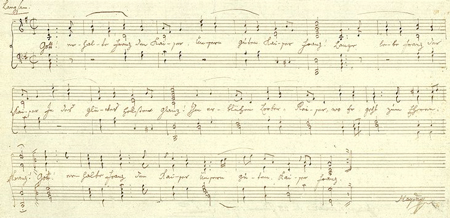 Langsam.
Gott! er-hal-te Franz den Kai-ser, Unsern guten Kai-ser Franz! Lange lebe Franz der
Kai-ser In des Glü-ckes hellstem Glanz! Ihm er-blühen Lorber-Rei-ser, wo er geht zum Ehren-
Kranz! Gott! er-halte Franz den Kaiser Unsern gu-ten Kai-ser Franz.
Haydn